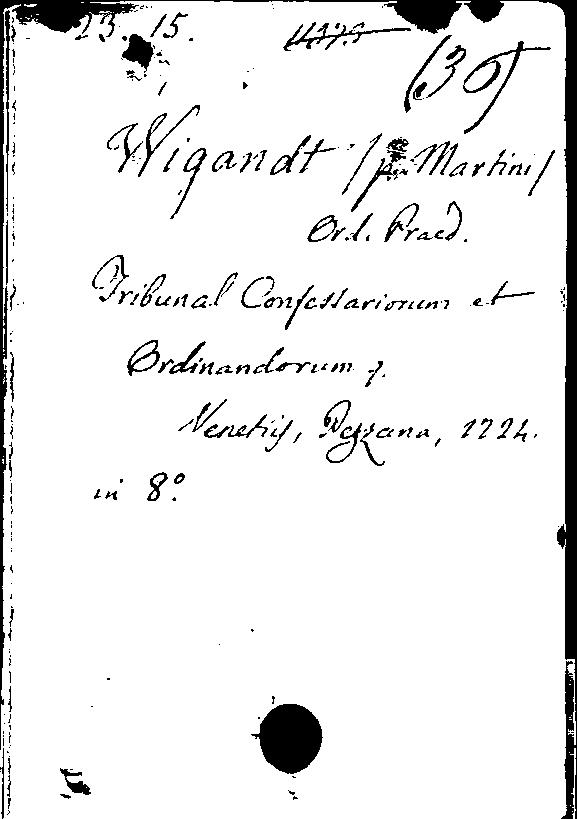 23. 15.
(36)
Wigandt / Martini /
Ord. Praed.
Tribunal Confessariorum et
Ordinandorum
Venetiis, Pezzana, 1724.
in 8°